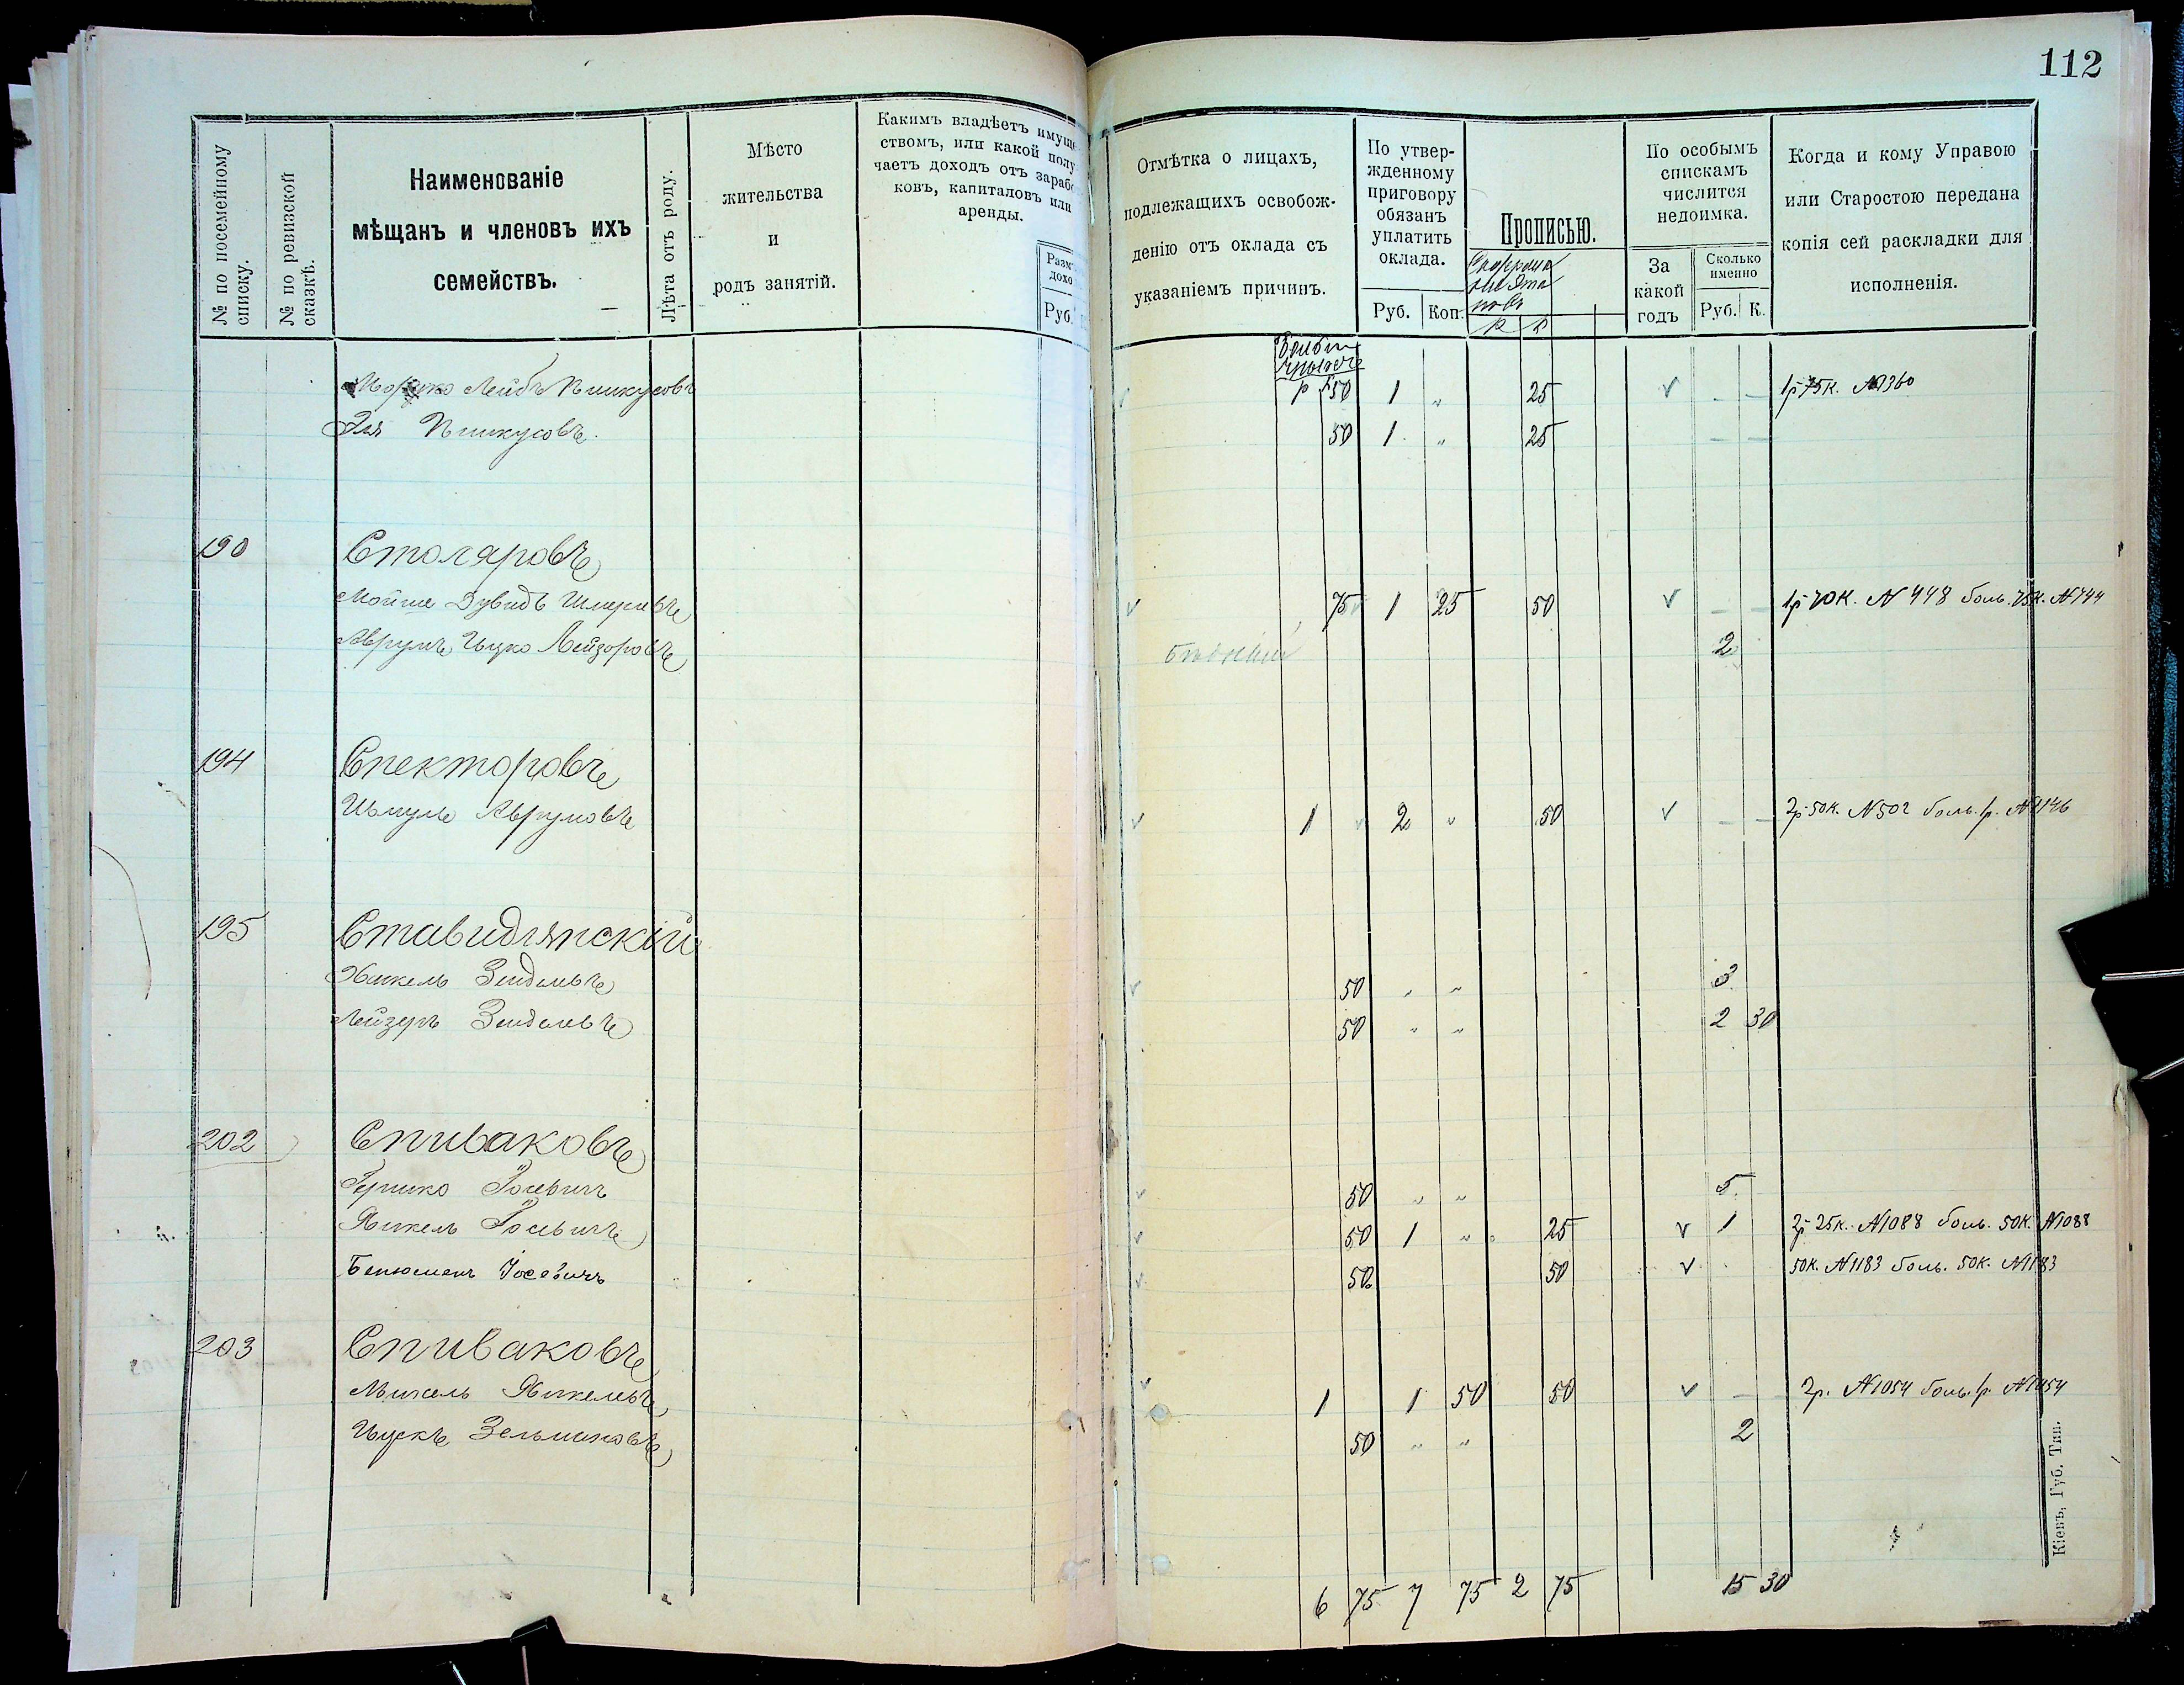 112
№ по посемейному списку.
№ по ревизской сказкѣ.
Наименованіе
мѣщанъ и членовъ ихъ
семействъ.
Лѣта отъ роду.
Мѣсто
жительства
и
родъ занятій.
Какимъ владѣетъ имуще
ствомъ, или какой полу
чаетъ доходъ отъ зараб
ковъ, капиталовъ или
аренды.
Разм
дохо
Руб.
Отмѣтка о лицахъ,
подлежащихъ освобож-
денію отъ оклада съ
указаніемъ причинъ.
По утвер-
жденному
приговору
обязанъ
уплатить
оклада.
Руб. Коп.
Прописью.
По особымъ
спискамъ
числится
недоимка.
За
какой
годъ
Сколько
именно
Руб. К.
Когда и кому Управою
или Старостою передана
копія сей раскладки для
исполненія.
Мошко Лейбъ Пинкусовъ 50 1 „ 25 V — — 1р 75к. №1360
Эля Пинкусовъ. 50 1 „ 25 — —
190 Столяровъ
Мойше Дувидъ Шмеревъ V 75 1 25 50 V — — 1р 70к. N 448 боль. 75к. N 744
Аврумъ Ицко Лейзоровъ 2
194 Спекторовъ
Шмуль Аврумовъ V 1 2 „ 50 V — — 2р 50к. N502 боль. 1р. N1146
195 Ставидлянскій
Хаскель Зейделевъ V 50 „ „ 3
Лейзеръ Зейделевъ 50 „ „ 2 30
202 Спиваковъ
Гершко Іосевичъ V 50 „ „ 5
Янкель Іосевичъ V 50 1 „ 25 V 1 2р 25к. N1088 боль. 50к. N1088
Бенюменъ Іосевичъ V 50 50 V 50к. N1183 боль. 50к. N1183
203 Спиваковъ
Михель Янкелевъ V 1 1 50 50 V — 2р. N1054 боль. 1р. N1054
Ицекъ Зельмановъ 50 „ „ 2
6 75 7 75 2 75 15 30
Кіевъ, Губ. Тип.